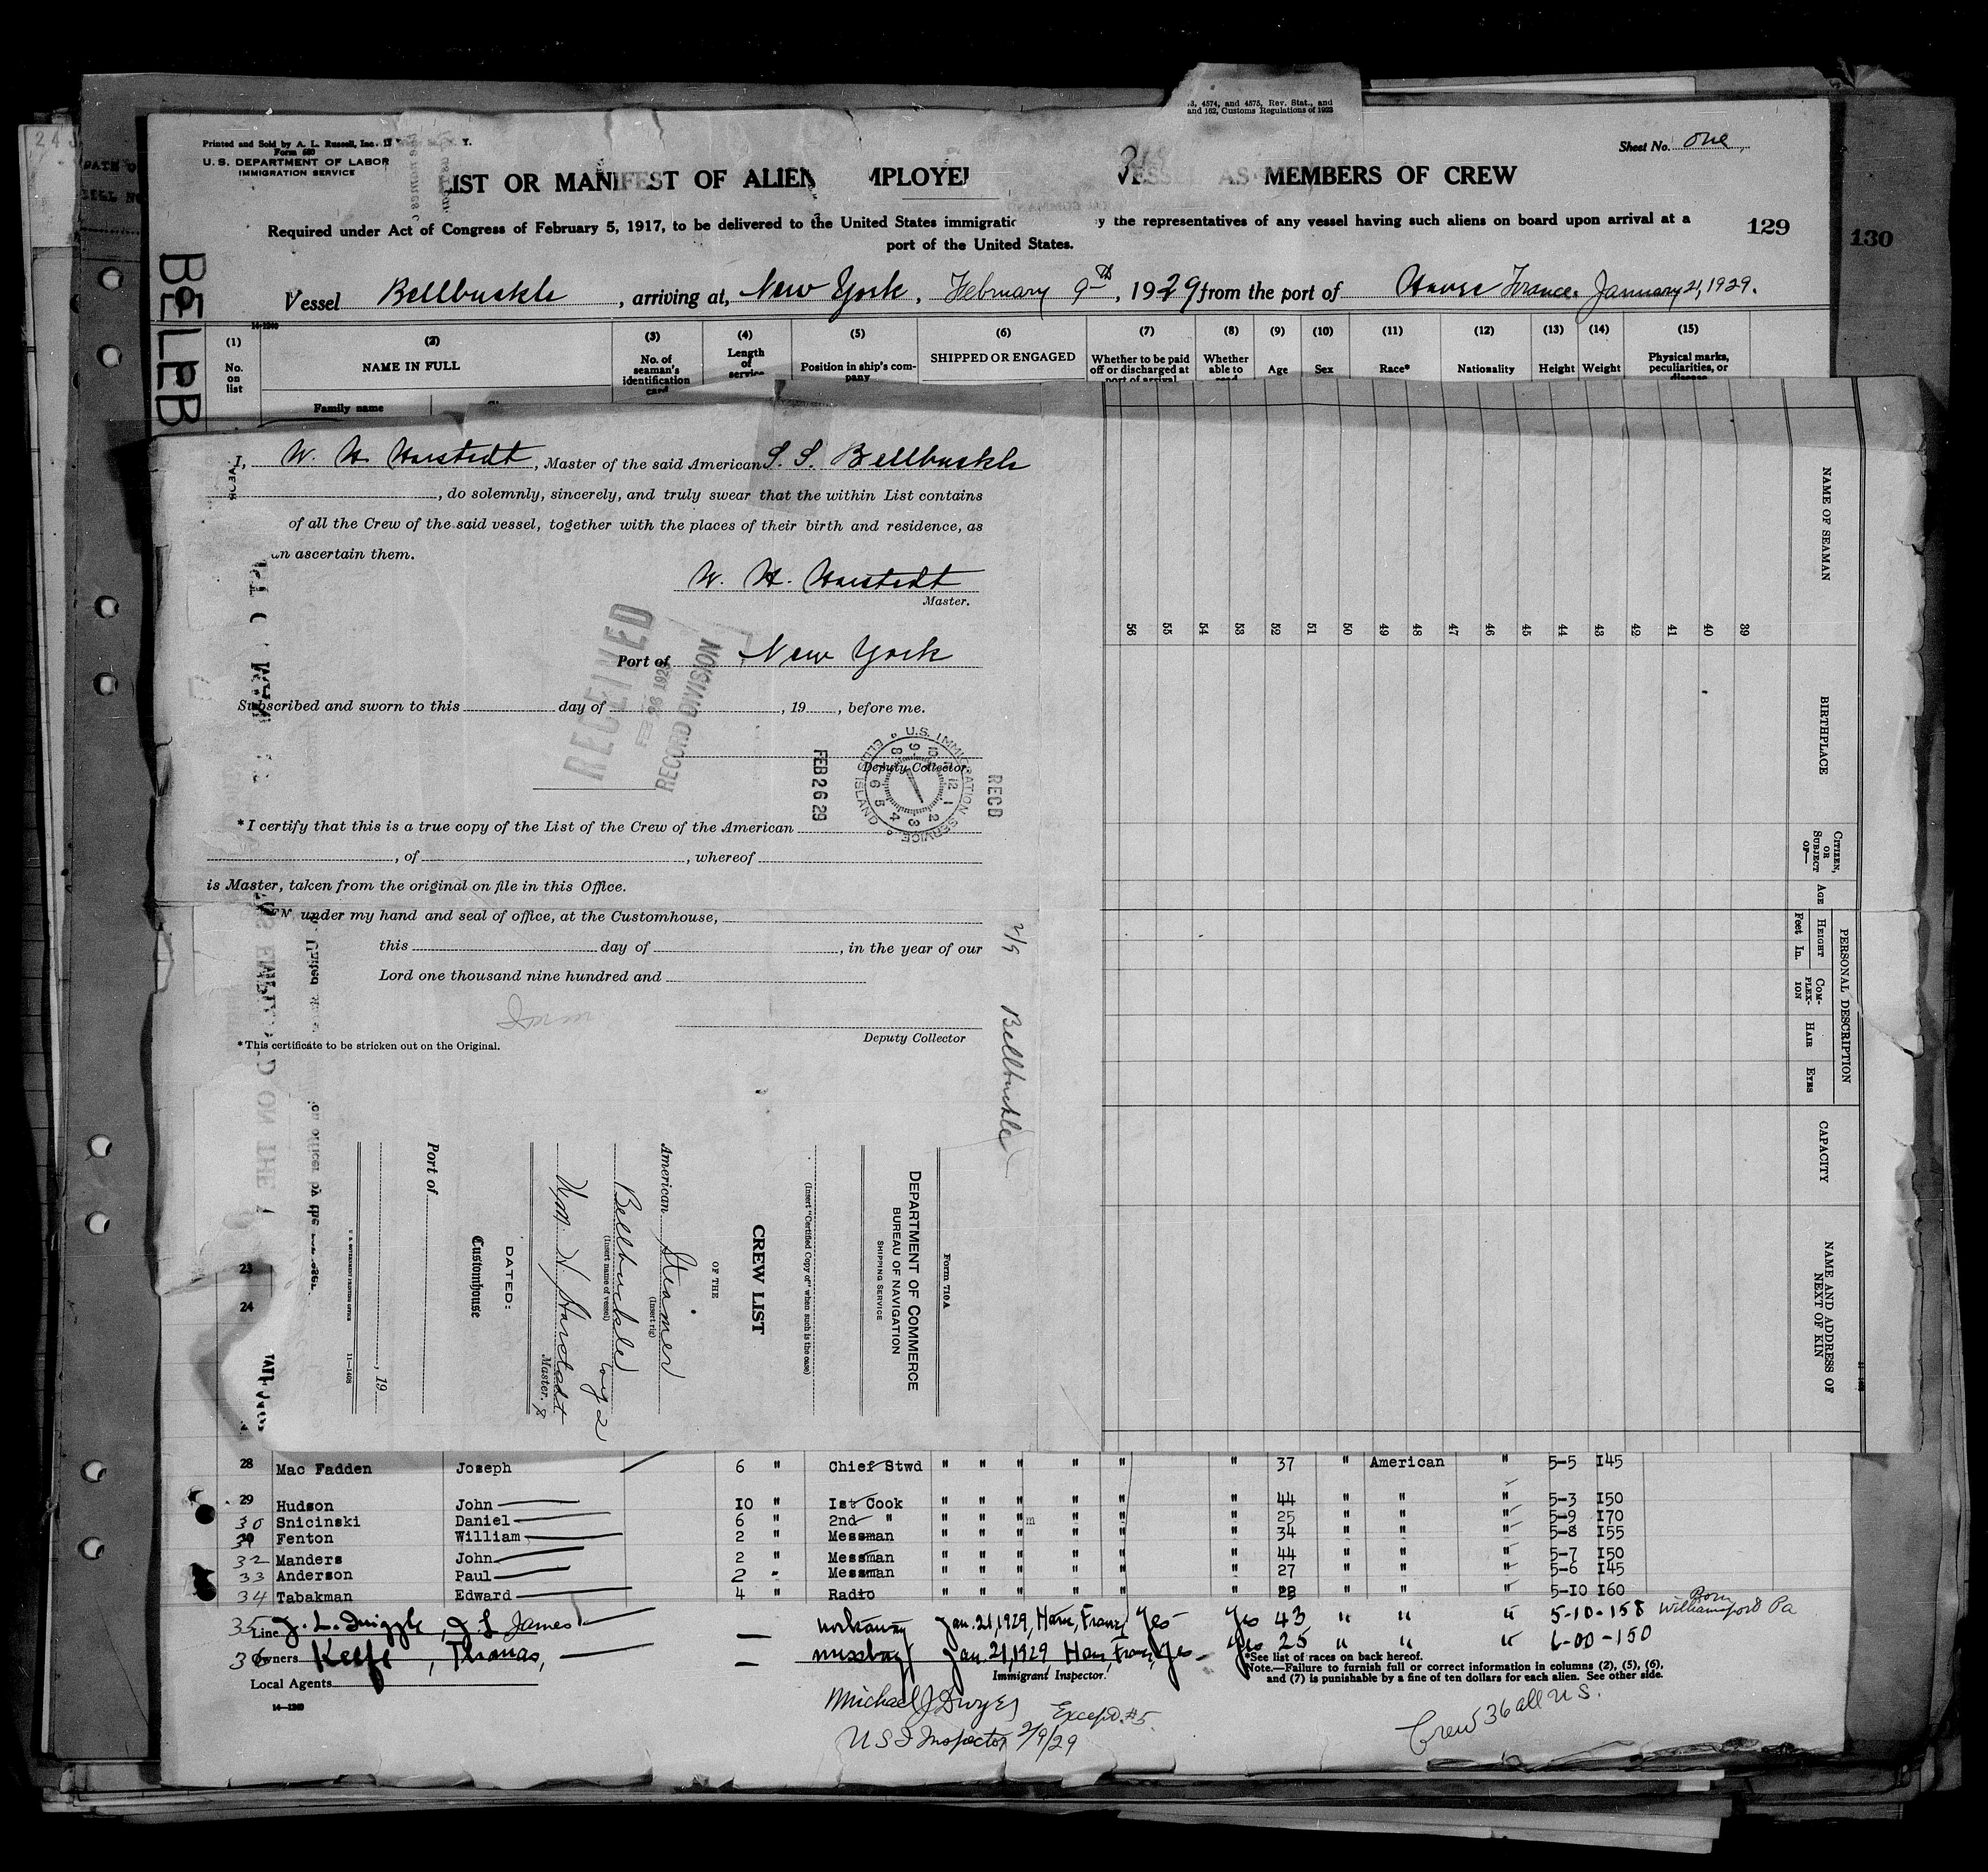 3, 4574, and 4575, Rev. Stat., and
and 162, Customs Regulations of 1923
Printed and Sold by A. L. Russell, Inc.
Form 680
U. S. DEPARTMENT OF LABOR
IMMIGRATION SERVICE
Sheet No. one
LIST OR MANIFEST OF ALIEN MPLOYE VESSEL AS MEMBERS OF CREW
Required under Act of Congress of February 5, 1917, to be delivered to the United States immigratio y the representatives of any vessel having such aliens on board upon arrival at a
port of the United States.
129
130
BELLB
Vessel Bellbuckle, arriving at, New York, February 9th, 1929 from the port of Havre France. January 21, 1929.
14-1240
(1) (2) (3) (4) (5) (6) (7) (8) (9) (10) (11) (12) (13) (14) (15)
No. on list
NAME IN FULL
Family name
No. of seaman's identification card
Length of service
Position in ship's company
SHIPPED OR ENGAGED
Whether to be paid off or discharged at port of arrival
Whether able to read
Age
Sex
Race*
Nationality
Height
Weight
Physical marks, peculiarities, or disease
I, W. H. Harstedt, Master of the said American S. S. Bellbuckle
, do solemnly, sincerely, and truly swear that the within List contains
of all the Crew of the said vessel, together with the places of their birth and residence, as
an ascertain them.
W. H. Harstedt
Master.
Port of New York
RECEIVED
FEB 26 1929
RECORD DIVISION
Subscribed and sworn to this day of , 19 , before me.
Deputy Collector
FEB 26 29
U.S. IMMIGRATION SERVICE ELLIS ISLAND
RECD
*I certify that this is a true copy of the List of the Crew of the American
, of , whereof
is Master, taken from the original on file in this Office.
EN under my hand and seal of office, at the Customhouse,
this day of , in the year of our
Lord one thousand nine hundred and
Deputy Collector
*This certificate to be stricken out on the Original.
2/9 Bellbuckle
Form 710A
DEPARTMENT OF COMMERCE
BUREAU OF NAVIGATION
SHIPPING SERVICE
(Insert "Certified Copy of" when such is the case)
CREW LIST
OF THE
American Steamer
(Insert rig)
Bellbuckle Voy 2
(Insert name of vessel)
Wm. H. Harstedt
Master.
DATED:
Customhouse
Port of
, 19
U. S. GOVERNMENT PRINTING OFFICE 11-1408
NAME OF SEAMAN
BIRTHPLACE
CITIZEN, OR SUBJECT OF—
AGE
PERSONAL DESCRIPTION
HEIGHT
Feet In.
COMPLEX-ION
HAIR
EYES
CAPACITY
NAME AND ADDRESS OF NEXT OF KIN
56 55 54 53 52 51 50 49 48 47 46 45 44 43 42 41 40 39
23
24
28 Mac Fadden Joseph 6 " Chief Stwd " " " " " " 37 " American " 5-5 145
29 Hudson John 10 " 1st Cook " " " " " " 44 " " " 5-3 150
30 Snicinski Daniel 6 " 2nd " " " " " " " 25 " " " 5-9 170
31 Fenton William 2 " Messman " " " " " " 34 " " " 5-8 155
32 Manders John 2 " Messman " " " " " " 44 " " " 5-7 150
33 Anderson Paul 2 " Messman " " " " " " 27 " " " 5-6 145
34 Tabakman Edward 4 " Radio " " " " " " 28 " " " 5-10 160
35 J. L. Quiggle, J L James — workaway Jan. 21, 1929, Havre, France Yes Yes 43 " " " 5-10-158 Born Williamsport Pa
36 Keefe, Thomas, — messboy Jan. 21, 1929 Havre, France, Yes Yes 25 " " " 6-00-150
Line
Owners
Local Agents
14-1240
Immigrant Inspector.
*See list of races on back hereof.
Note.—Failure to furnish full or correct information in columns (2), (5), (6),
and (7) is punishable by a fine of ten dollars for each alien. See other side.
Michael J Dwyer
Except #5.
U S I Inspector 2/9/29
Crew 36 all U S.